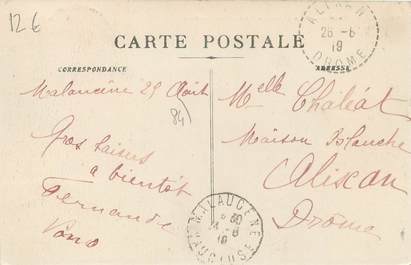 12 €
CARTE POSTALE
CORRESPONDANCE
ADRESSE
ALIXAN
26 -8
19
DROME
Malaucène 25 Août
84)
Gros baisers
a bientôt
Fernande
Melle Chaléat
Maison Blanche
Alixan
Drôme
MALAUCENE
19
VAUCLUSE